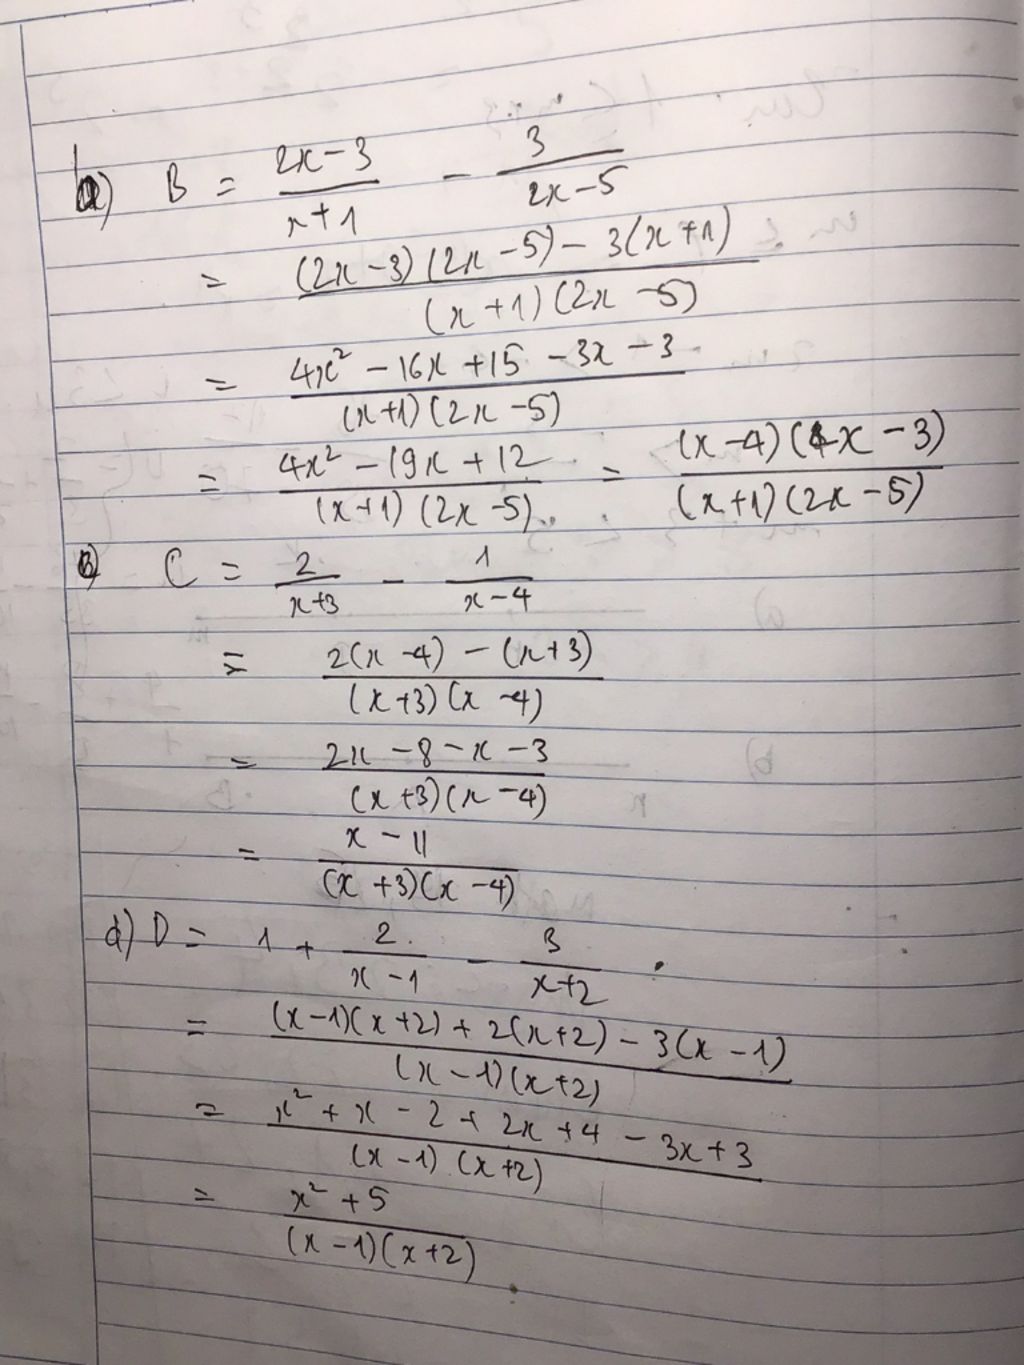 b) B = \frac{2x-3}{x+1} - \frac{3}{2x-5}
= \frac{(2x-3)(2x-5)-3(x+1)}{(x+1)(2x-5)}
= \frac{4x^2-16x+15-3x-3}{(x+1)(2x-5)}
= \frac{4x^2-19x+12}{(x+1)(2x-5)} = \frac{(x-4)(4x-3)}{(x+1)(2x-5)}
C = \frac{2}{x+3} - \frac{1}{x-4}
= \frac{2(x-4)-(x+3)}{(x+3)(x-4)}
= \frac{2x-8-x-3}{(x+3)(x-4)}
= \frac{x-11}{(x+3)(x-4)}
d) D = 1 + \frac{2}{x-1} - \frac{3}{x+2}
= \frac{(x-1)(x+2)+2(x+2)-3(x-1)}{(x-1)(x+2)}
= \frac{x^2+x-2+2x+4-3x+3}{(x-1)(x+2)}
= \frac{x^2+5}{(x-1)(x+2)}